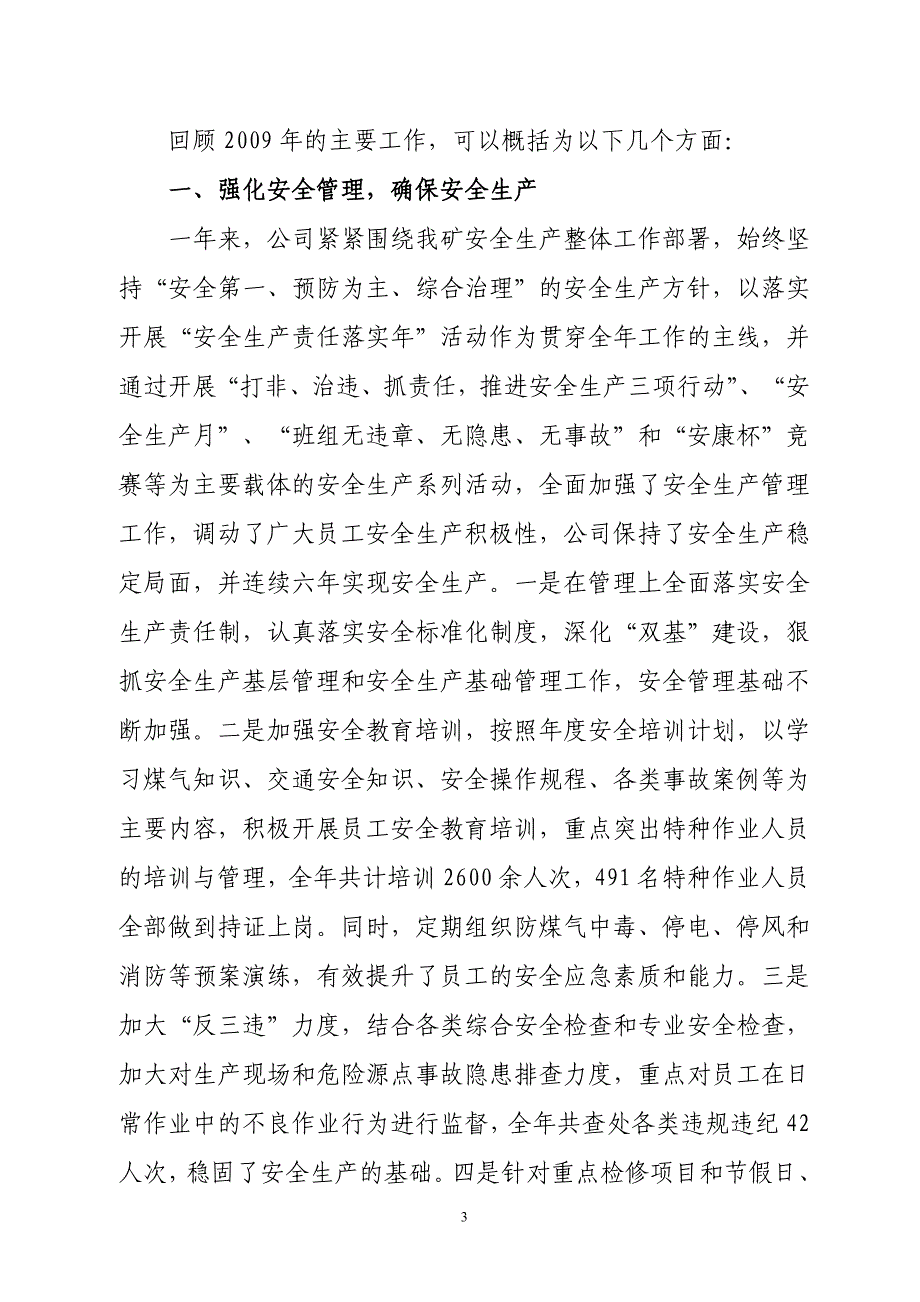 回顾 2009 年的主要工作，可以概括为以下几个方面：
一、强化安全管理，确保安全生产
一年来，公司紧紧围绕我矿安全生产整体工作部署，始终坚
持“安全第一、预防为主、综合治理”的安全生产方针，以落实
开展“安全生产责任落实年”活动作为贯穿全年工作的主线，并
通过开展“打非、治违、抓责任，推进安全生产三项行动”、“安
全生产月”、“班组无违章、无隐患、无事故”和“安康杯”竞
赛等为主要载体的安全生产系列活动，全面加强了安全生产管理
工作，调动了广大员工安全生产积极性，公司保持了安全生产稳
定局面，并连续六年实现安全生产。一是在管理上全面落实安全
生产责任制，认真落实安全标准化制度，深化“双基”建设，狠
抓安全生产基层管理和安全生产基础管理工作，安全管理基础不
断加强。二是加强安全教育培训，按照年度安全培训计划，以学
习煤气知识、交通安全知识、安全操作规程、各类事故案例等为
主要内容，积极开展员工安全教育培训，重点突出特种作业人员
的培训与管理，全年共计培训 2600 余人次，491 名特种作业人员
全部做到持证上岗。同时，定期组织防煤气中毒、停电、停风和
消防等预案演练，有效提升了员工的安全应急素质和能力。三是
加大“反三违”力度，结合各类综合安全检查和专业安全检查，
加大对生产现场和危险源点事故隐患排查力度，重点对员工在日
常作业中的不良作业行为进行监督，全年共查处各类违规违纪 42
人次，稳固了安全生产的基础。四是针对重点检修项目和节假日、
3